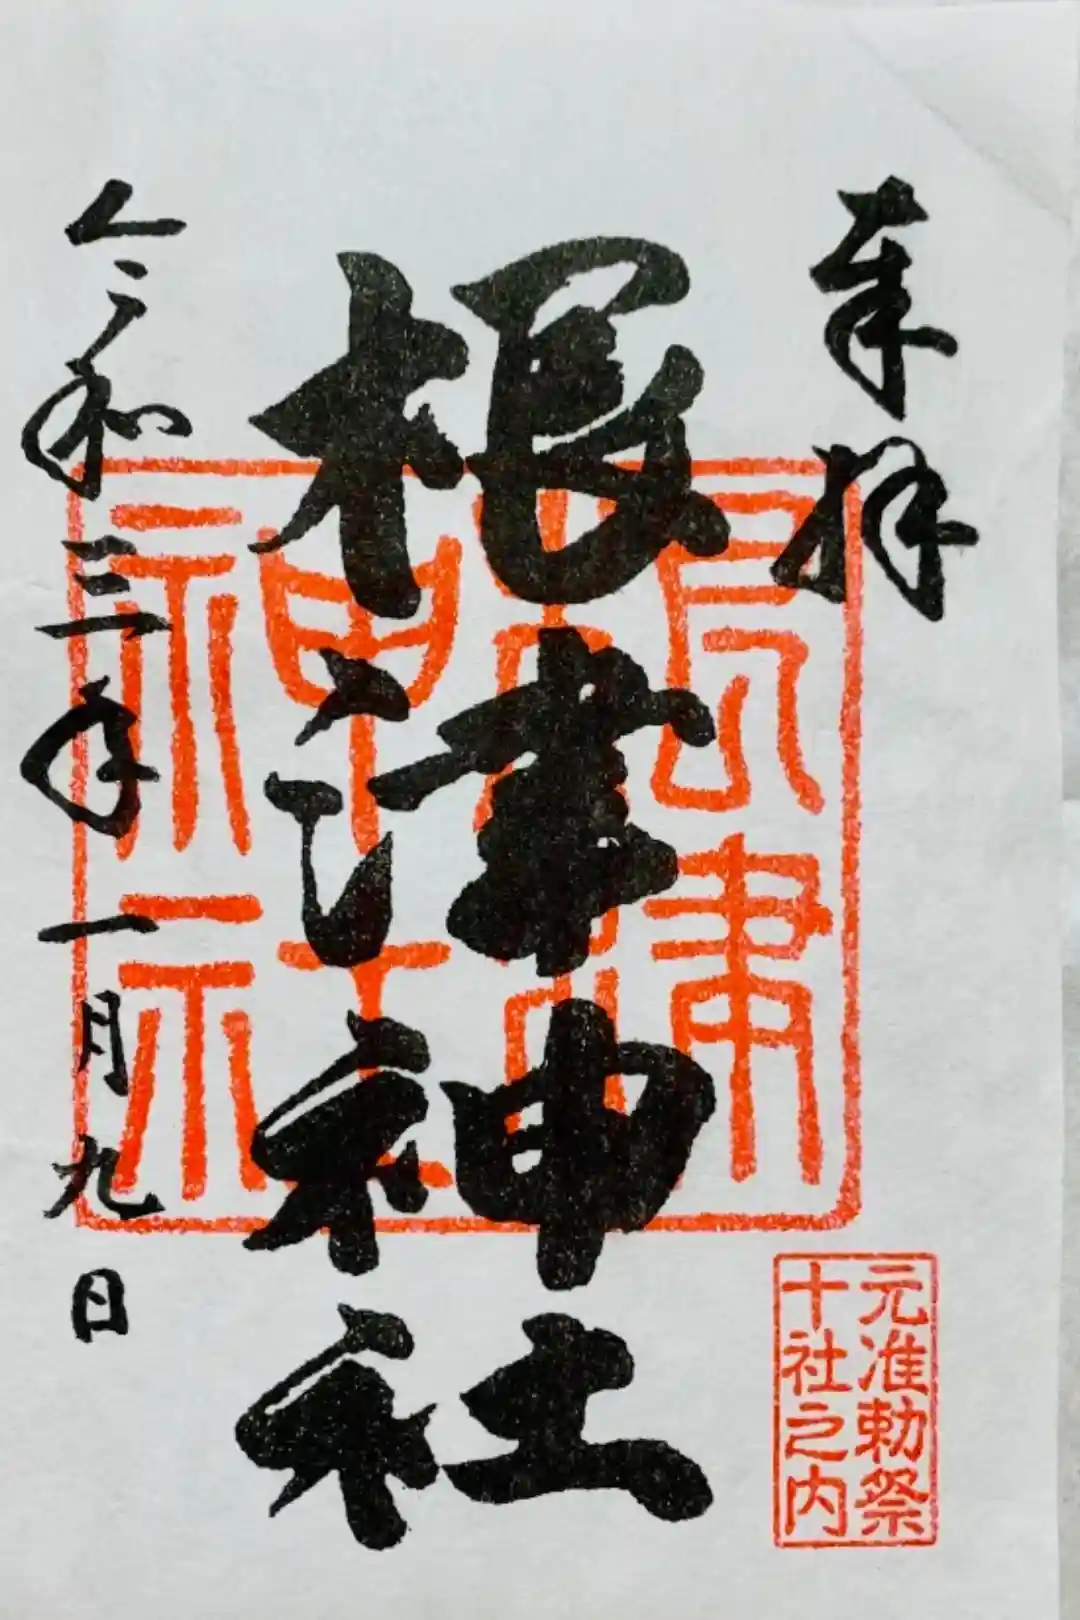 奉拝
根津神社
令和三年一月九日
根津神社
元准勅祭
十社之内